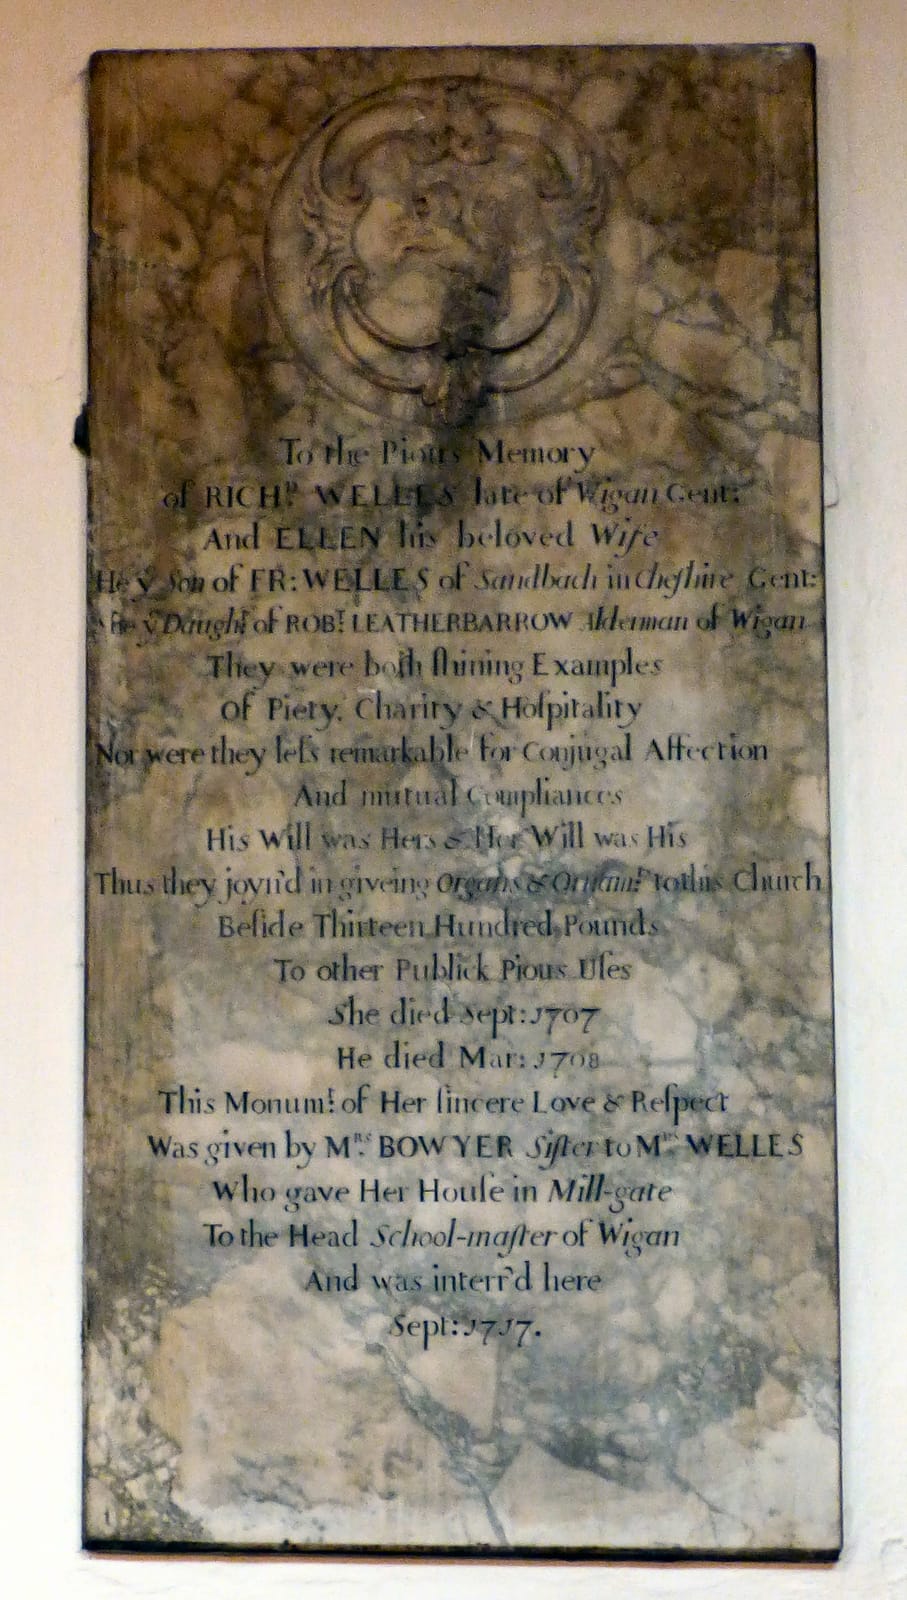 To the Pious Memory
of RICHD. WELLES late of Wigan Gent:
And ELLEN his beloved Wife
He yͤ Son of FR: WELLES of Sandbach in Cheſhire Gent:
She yͤ Daught. of ROBT. LEATHERBARROW Alderman of Wigan
They were both ſhining Examples
Of Piety, Charity & Hoſpitality
Nor were they leſs remarkable for Conjugal Affection
And mutual Compliances
His Will was Hers & Her Will was His
Thus they joyn'd in giveing Organs & Ornamts. to this Church
Beſide Thirteen Hundred Pounds
To other Publick Pious Uſes
She died Sept: 1707
He died Mar: 1708
This Monumt. of Her ſincere Love & Reſpect
Was given by MRS. BOWYER Siſter to MRS. WELLES
Who gave Her Houſe in Mill-gate
To the Head School-maſter of Wigan
And was interr'd here
Sept: 1717.